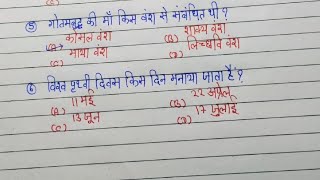 ⑤ गौतमबुद्ध की माँ किस वंश से संबंधित थी ?
(A) कोसल वंश (B) शाक्य वंश
(C) माया वंश (D) लिच्छवि वंश
⑥ विश्व पृथ्वी दिवस किस दिन मनाया जाता है ?
(A) 11 मई (B) 22 अप्रैल
(C) 13 जून (D) 17 जुलाई